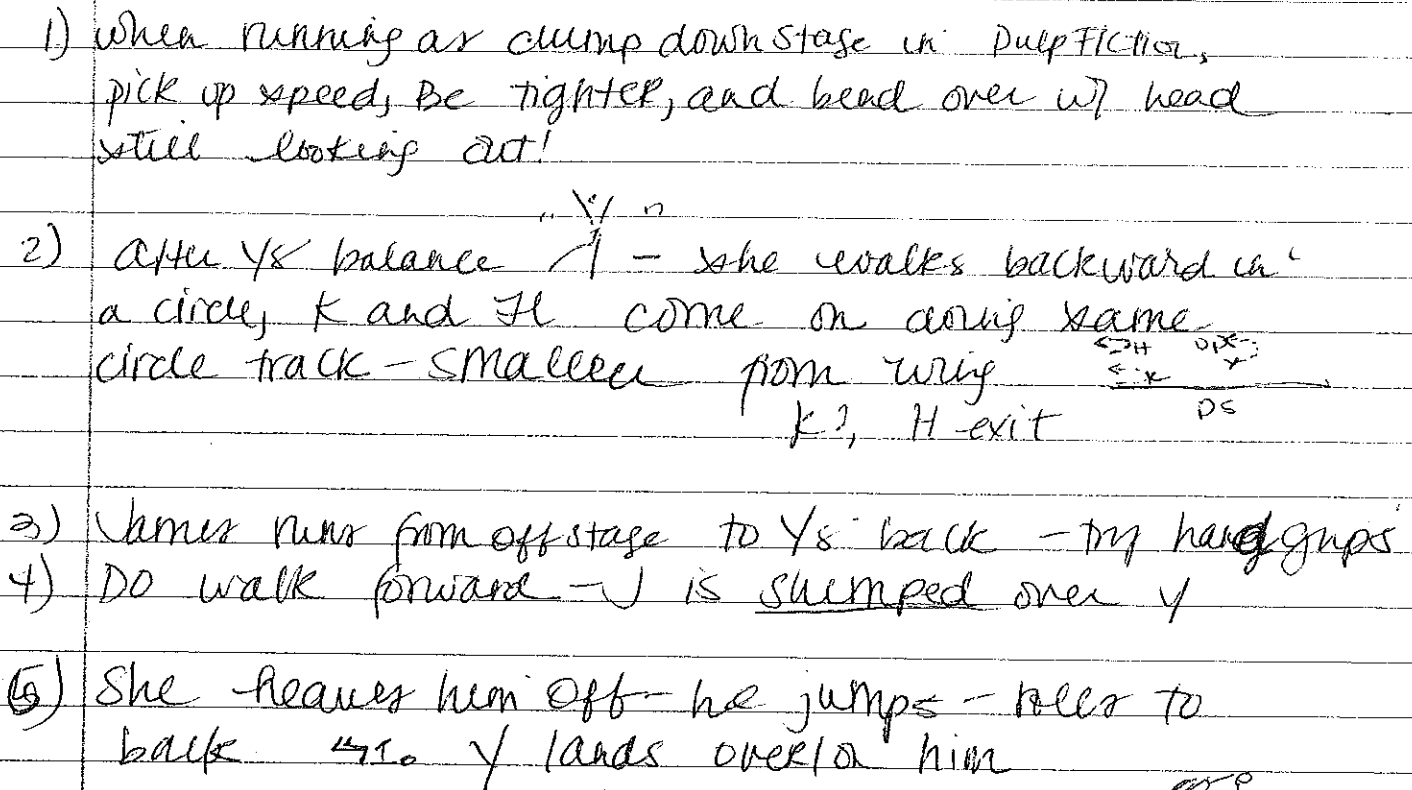 1) When running as clump downstage in Pulp Fiction,
pick up speed, Be tighter, and bend over w/ head
still looking out!
2) After Ys balance - she walks backward in
a circle, K and H come on doing same
circle track - smaller from wing
H
K Y
DS
K?, H - exit
3) James runs from offstage to Ys back - try hand grips
4) DO walk forward - J is slumped over Y
5) She heaves him off - he jumps - rolls to
back Y lands over/on him
are